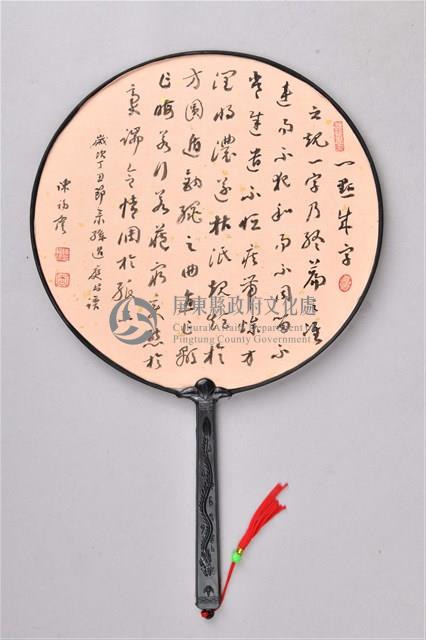 一點成字
之規一字乃終篇之準
違而不犯和而不同留不
常遲遣不恒疾帶燥方
潤將濃遂枯泯規矩於
方圓遁鉤繩之曲直乍顯
乍晦若行若藏窮變態於
毫端合情調於紙上
歲次丁丑節錄孫過庭書譜
陳福
屏東縣政府文化處
Cultural Affairs Department
Pingtung County Government